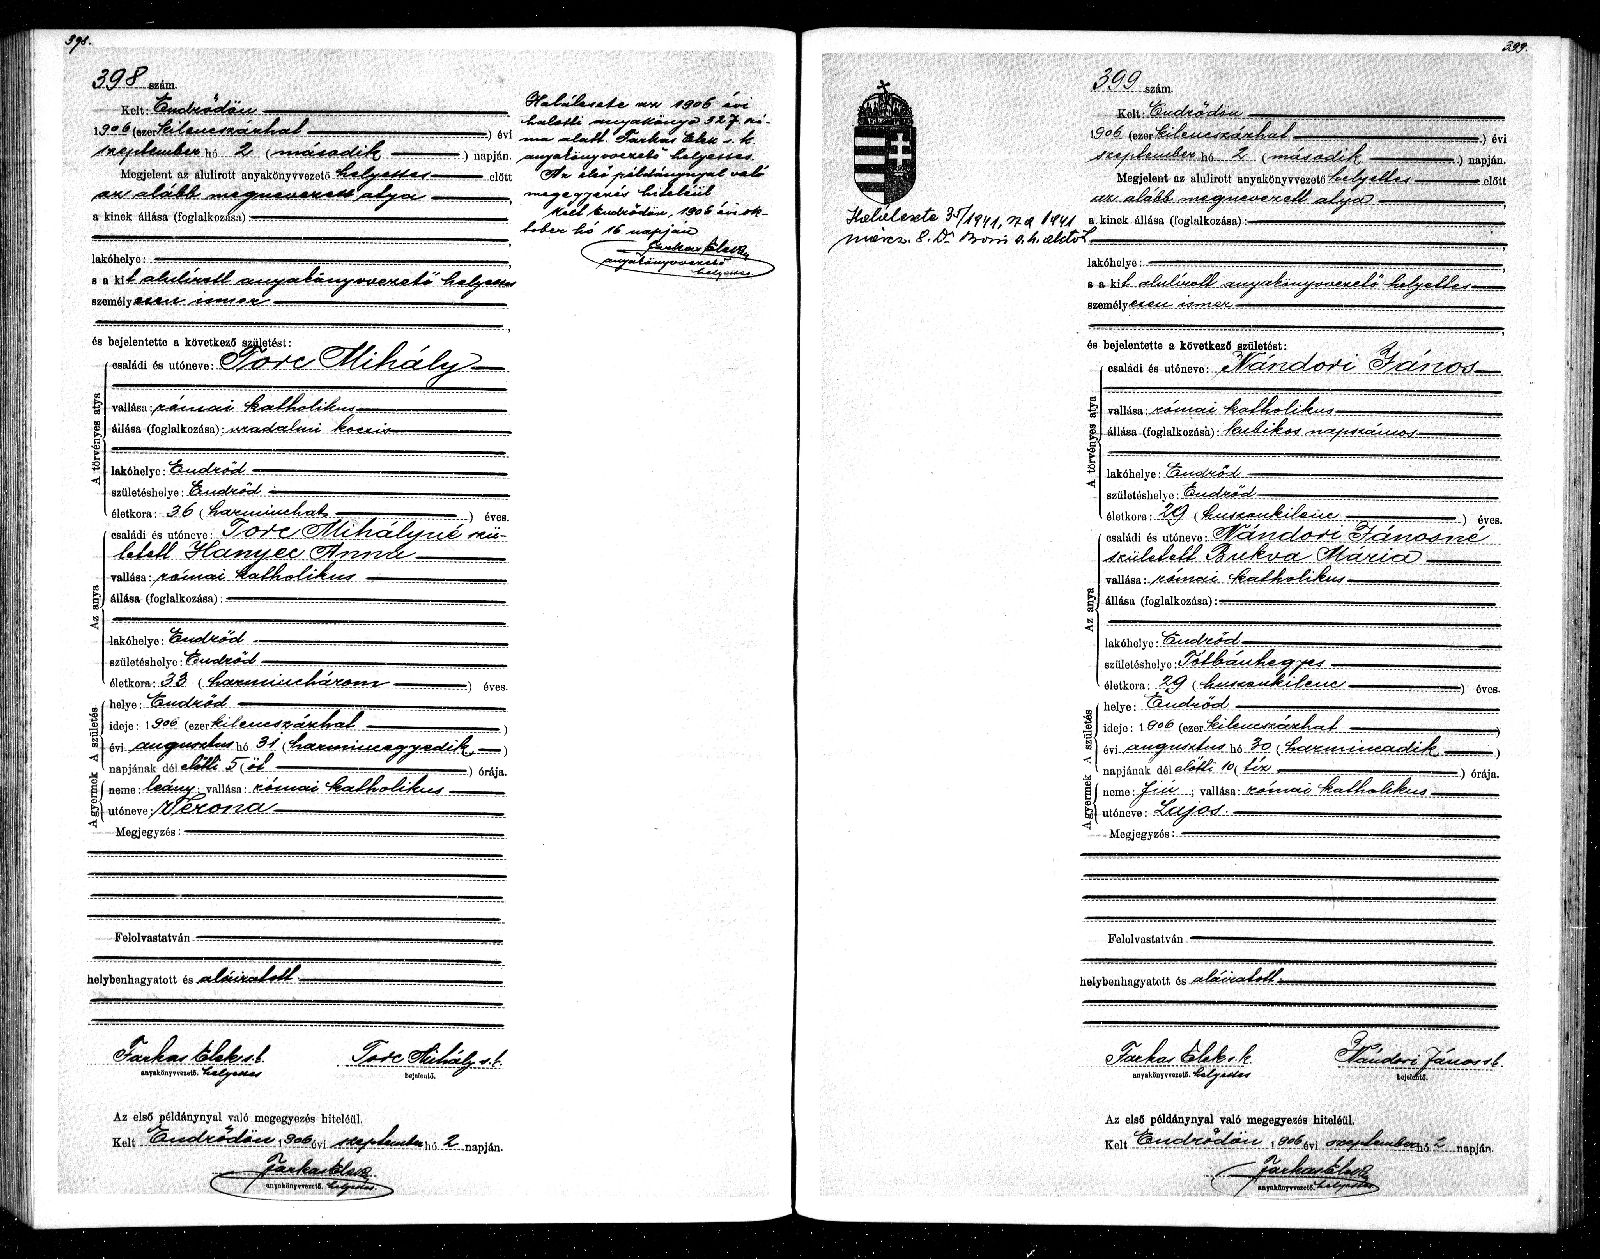 398.
398 szám.
Kelt: Endrődön
1906 (ezer kilenczszázhat) évi
szeptember hó 2 (második) napján.
Megjelent az alulirott anyakönyvvezető helyettes előtt
az alább megnevezett atya
a kinek állása (foglalkozása):
lakóhelye:
s a kit alulirott anyakönyvvezető helyettes
személyesen ismer
és bejelentette a következő születést:
A törvényes atya
családi és utóneve: Torc Mihály
vallása: római katholikus
állása (foglalkozása): uradalmi kocsis
lakóhelye: Endrőd
születéshelye: Endrőd
életkora: 36 (harminczhat) éves.
Az anya
családi és utóneve: Torc Mihályné szü-
letett Hanyec Anna
vallása: római katholikus
állása (foglalkozása):
lakóhelye: Endrőd
születéshelye: Endrőd
életkora: 33 (harminczhárom) éves.
A születés
helye: Endrőd
ideje: 1906 (ezer kilenczszázhat)
évi augusztus hó 31 (harminczegyedik)
napjának dél előtti 5 (öt) órája.
A gyermek
neme: leány; vallása: római katholikus
utóneve: Verona
Megjegyzés:
Felolvastatván
helybenhagyatott és aláiratott
Farkas Elek s.k. Torc Mihály s.k.
anyakönyvvezető. helyettes bejelentő.
Az első példánynyal való megegyezés hiteléül.
Kelt Endrődön 1906 évi szeptember hó 2 napján.
Farkas Elek
anyakönyvvezető. helyettes
Halálesete az 1906 évi
halotti anyakönyv 327 szá-
ma alatt. Farkas Elek s. k.
anyakönyvvezető helyettes.
Az első példánynyal való
megegyezés hiteléül
Kelt Endrődön, 1906 évi ok-
tober hó 16 napján
Farkas Elek
anyakönyvvezető
helyettes
399.
Halálesete 35/1941, 1941
márcz. 8. Dr
399 szám.
Kelt: Endrődön
1906 (ezer kilenczszázhat) évi
szeptember hó 2 (második) napján.
Megjelent az alulirott anyakönyvvezető helyettes előtt
az alább megnevezett atya
a kinek állása (foglalkozása):
lakóhelye:
s a kit alulirott anyakönyvvezető helyettes
személyesen ismer
és bejelentette a következő születést:
A törvényes atya
családi és utóneve: Nándori János
vallása: római katholikus
állása (foglalkozása): kubikos napszámos
lakóhelye: Endrőd
születéshelye: Endrőd
életkora: 29 (huszonkilenc) éves.
Az anya
családi és utóneve: Nándori Jánosné
született Bukva Mária
vallása: római katholikus
állása (foglalkozása):
lakóhelye: Endrőd
születéshelye: Tótbánhegyes
életkora: 29 (huszonkilenc) éves.
A születés
helye: Endrőd
ideje: 1906 (ezer kilenczszázhat)
évi augusztus hó 30 (harminczadik)
napjának dél előtti 10 (tíz) órája.
A gyermek
neme: fiú; vallása: római katholikus
utóneve: Lajos
Megjegyzés:
Felolvastatván
helybenhagyatott és aláiratott
Farkas Elek s.k. Nándori János s.k.
anyakönyvvezető. helyettes bejelentő.
Az első példánynyal való megegyezés hiteléül.
Kelt Endrődön 1906 évi szeptember hó 2 napján.
Farkas Elek
anyakönyvvezető. helyettes